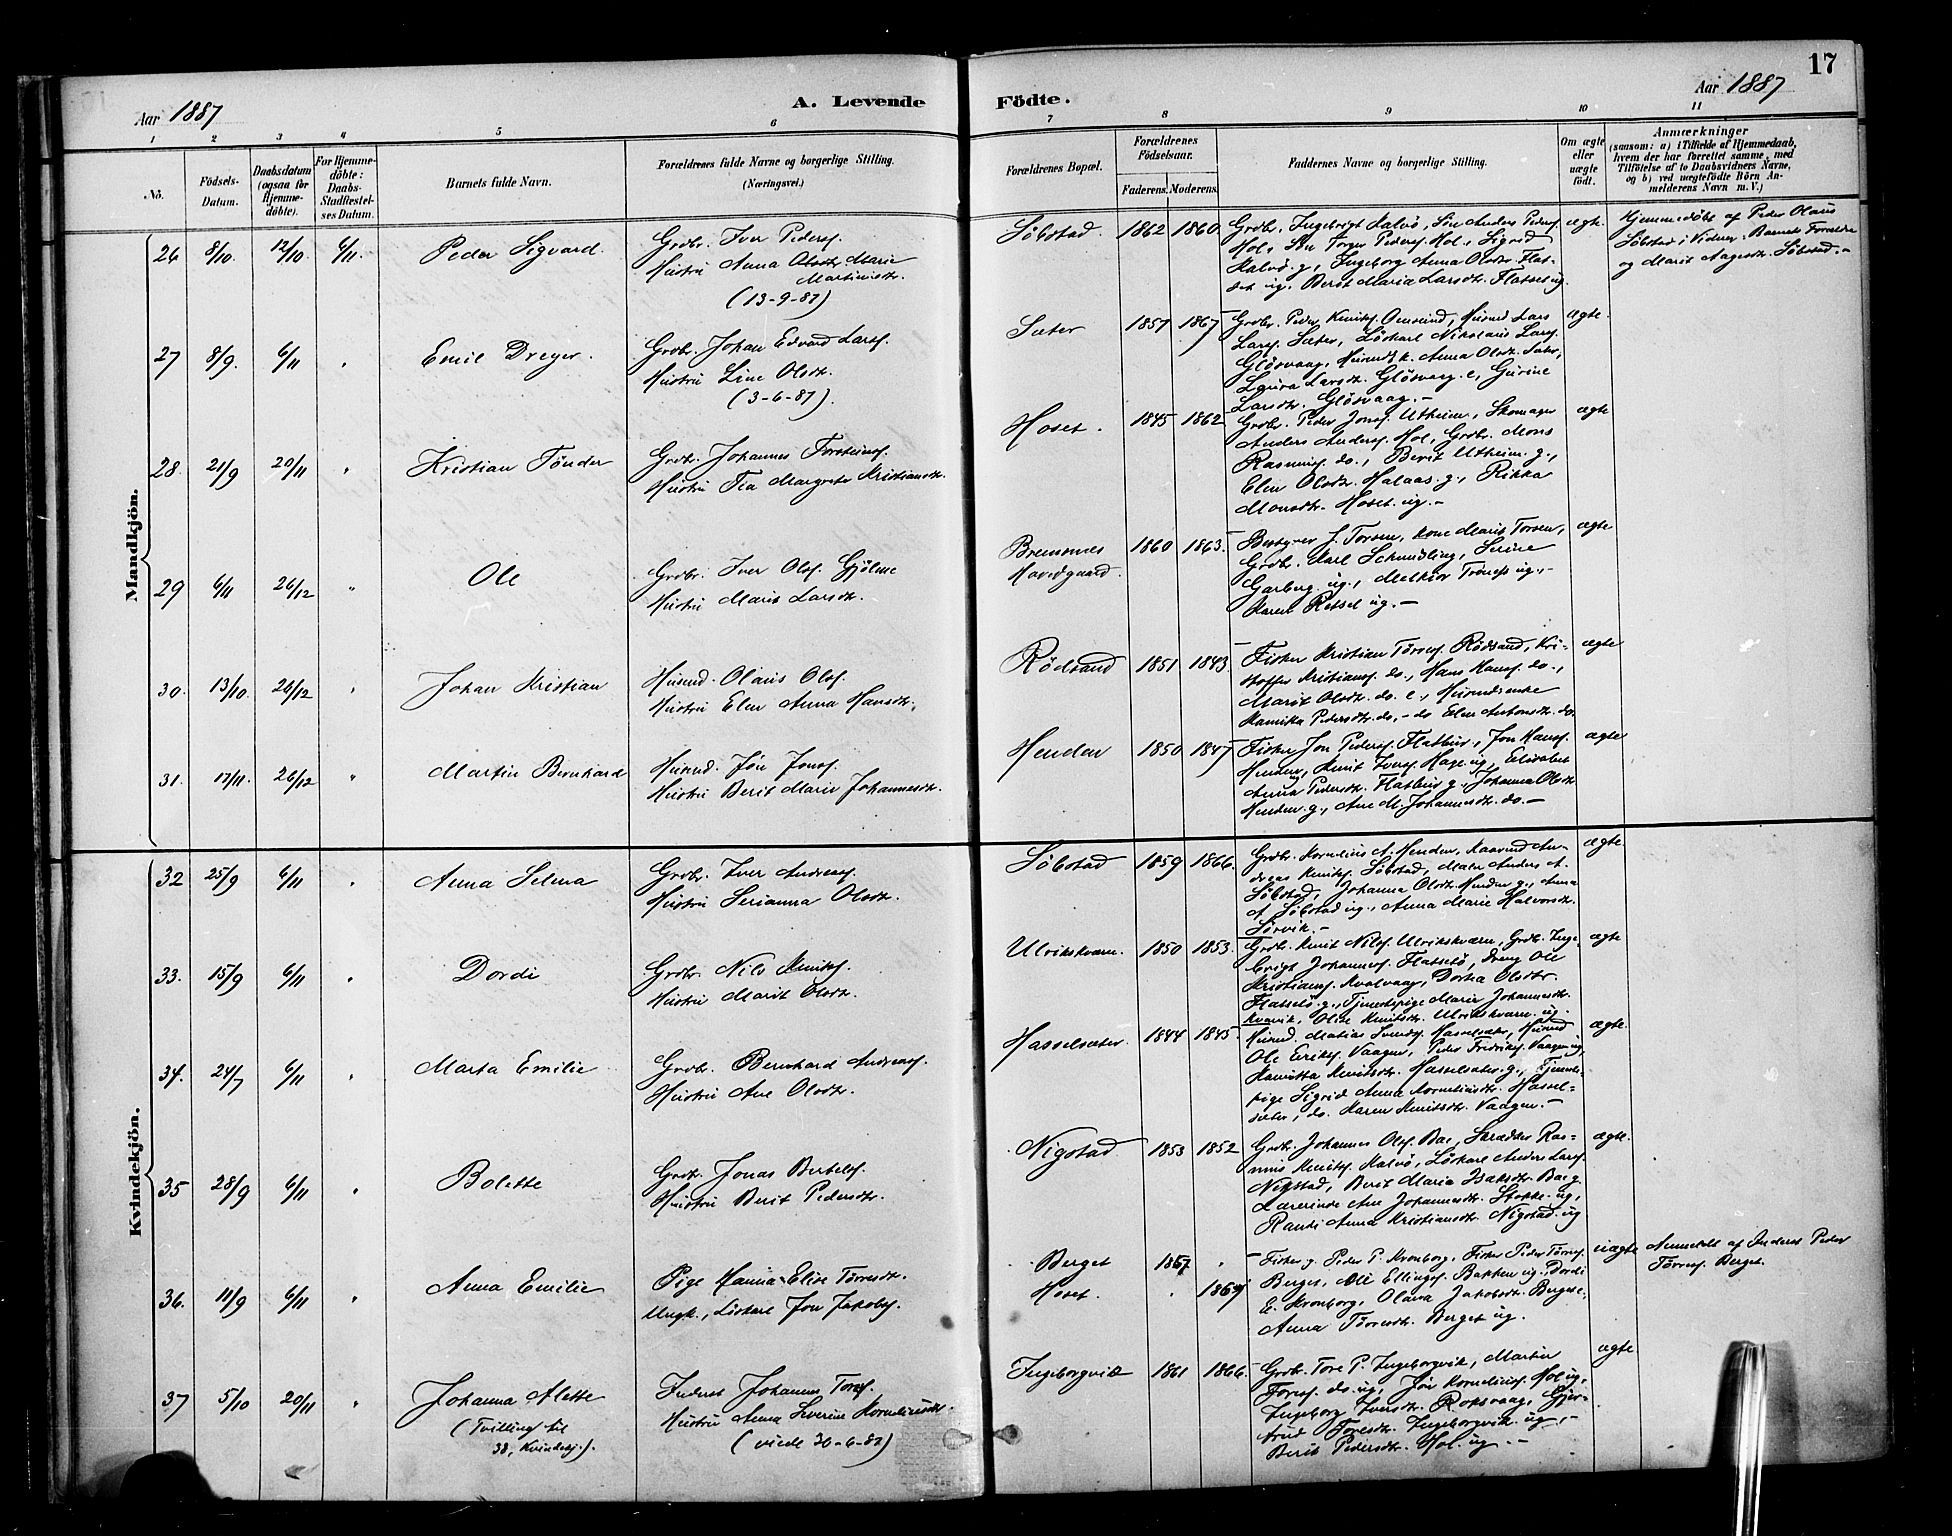 17
Aar 1887
A. Levende
Födte.
Aar 1887
1 2 3 4 5 6 7 8 9 10 11
No.
Födsels-
Datum.
Daabsdatum
(ogsaa for
Hjemme-
döbte).
For Hjemme-
döbte:
Daabs-
Stadfæstel-
ses Datum.
Barnets fulde Navn.
Forældrenes fulde Navne og borgerlige Stilling.
(Næringsvei.)
Forældrenes Bopæl.
Forældrenes
Födselsaar.
Faderens. Moderens.
Faddernes Navne og borgerlige Stilling.
Om ægte
eller
uægte
födt.
Anmærkninger
(saasom: a) i Tilfælde af Hjemmedaab,
hvem der har forrettet samme, med
Tilföielse af to Daabsvidners Navne,
og b) ved uægtefödte Börn An-
melderens Navn m. V.)
Mandkjön.
26 8/10. 12/10. 6/11. Peder Sigvard.
Grdbr. Iver Peders.
Hustru Anna Olsdtr. Marie
Martinisdtr.
(13-9-87)
Söbstad. 1862 1860
Grdbr. Ingebrigt Kalvö, Sön Anders Peders.
Hol, Sön Torger Peders. Hol, Sigrid
Kalvö g., Ingeborg Anna Olsdtr. Flat-
set ug., Berit Maria Larsdtr. Flatset ug.
ægte.
Hjemmedöbt af Peder Olaus
Söbstad i Nidviog. Barnets Forældre
og Marit Aagesdtr. Söbstad.-
27 8/9. 6/11 " Emil Dreyer.
Grdbr. Johan Edvard Lars.
Hustru Line Olsdtr.
(3-6-87).
Sæter 1857 1867
Grdbr. Peder Knuts. Omsund, Husmd Lars
Lars. Sæter, Löskarl Nikolaus Lars.
Glösvaag, Husmdsk. Anna Olsdtr. Sæter,
Laura Larsdtr. Glösvaag. e, Gurine
Larsdtr. Glösvaag.-
ægte.
28. 21/9 20/11 " Kristian Tönder
Grdbr. Johannes Torsteins.
Hustru Fia Margrete Kristiansdtr.
Hoset. 1845 1862
Grdbr. Peder Jons. Utheim, Skomager
Anders Anders. Hol, Grdbr. Mons
Rasmus. do., Berit Utheim g.,
Elen Olsdtr. Halaas. g., Rikka
Monsdtr. Hoset. ug.-
ægte
29 6/11 26/12 " Ole
Grdbr. Iver Ols. Gjölme
Hustru Marit Larsdtr.
Bremsnes
Hovedgaard. 1860 1863.
Bestyrer J. Torsen, kone Marit Torsen,
Grdbr. Karl Schmidling, Serine
Garberg ug., Melkior Tönes ug.,-
Karen Retsel ug.-
ægte
30. 13/10. 26/12 " Johan Kristian
Husmd. Olaus Ols.
Hustru Elen Anna Hansdtr.
Rödsand 1851 1843
Fisker Kristian Törres. Rödsand, Kri-
stoffer Kristians. do., Hans Hans. do.,
Marit Olsdtr. do. e., Husmdsenke
Hanika Pedersdtr. do.,- do Elen Antonsdtr. do.
ægte
31. 17/11. 26/12 " Martin Bernhard
Husmd. Jön Jons.
Hustru Berit Marie Johannesdtr.
Henden 1850 1847
Fisker Jon Peders. Flatbur, Jon Hans.
Henden, Knut Ivers. Hage ug, Elisabet
Anna Pedersdtr. Flatbur g., Johanna Olsdtr
Henden g., Ane M. Johannesdtr. do.-
ægte
Kvindekjön.
32 25/9 6/11 " Anna Selma
Grdbr. Iver Andreas.
Hustru Serianna Olsdtr.
Söbstad 1859 1866.
Grdbr. Kornelius A. Henden, Kaarmd An-
dreas Knuts. Söbstad, Maler Anders A.
Söbstad, Johanna Olsdtr. Henden g., Anna
A. Söbstad ug., Anna Marie Halvorsdtr.
Sörvik.-
ægte.
33. 15/9 6/11 " Dordi
Grdbr. Nils Knuts.
Hustru Marit Olsdtr.
Ulrikskværn. 1850 1853.
Grdbr. Knut Nils. Ulrikskværn, Grdbr. Inge-
brigt Johannes. Flatsetö, Dreng Ole
Kristians. Kvalvaag, Dortea Olsdtr.
Flatsetö. g., Tjenestepige Marie Johannesdtr.
Kvarvik, Oline Knutsdtr. Ulrikskværn. ug.
ægte
34. 24/7 6/11 " Marta Emilie
Grdbr. Bernhard Andreas.
Hustru Ane Olsdtr.
Hasselsæter. 1844 1845.
Husmd. Matias Svends. Hasselsæter, Husmd
Ole Eriks. Vaagen, Peder Fredriks. Vaagen ug,
Hansetta Knutsdtr. Hasselsæter. g., Tjeneste-
pige Sigrid Anna Korneliusdtr. Hassel-
sæter, do. Karen Knutsdtr. Vaagen.-
ægte.
35 28/9 6/11 " Bolette
Grdbr. Jonas Bertels.
Hustru Berit Pedersdtr.
Nigstad 1853 1852
Grdbr. Johannes Ols. Bae, Skrædder Ras-
mus Knuts. Kalvö, Löskarl Anders Lars.
Nigstad, Berit Maria Isaksdtr. Bae g.
Lærerinde Ane Johannesdtr. Stokke. ug,
Randi Anna Kristiansdtr. Nigstad. ug
ægte.
36. 11/9 6/11 " Anna Emilie
Pige Hanna Elise Törresdtr.
Ungk., Löskarl Jon Jakobs.
Berget 1867 "
Hoset. " 1864
Fisker g. Peder P. Kronborg, Fisker Peder Törres.
Berget, Ole Ellings. Bakken ug. Dordi
E. Kronborg, Olava Jakobsdtr. Berget e,
Anna Törresdtr. Berget ug.
uægte
Anmeldt af Inderst Peder
Törres. Berget.
37 5/10 20/11 " Johanna Alette
(Tvilling til
38, Kvindekj.).
Inderst Johannes Tores.
Hustru Anna Severine Korneliusdtr.
(viede 30-6-87)
Ingeborgvik 1861 1866.
Grdbr. Tore P. Ingeborgvik, Martin
Tores. do. ug, Jön Kornelius. Hol ug,
Ingeborg Iversdtr. Roksvaag, Gjer-
trud Toresdtr. Ingeborgvik ug.,-
Berit Pedersdtr. Hol. ug.-
ægte